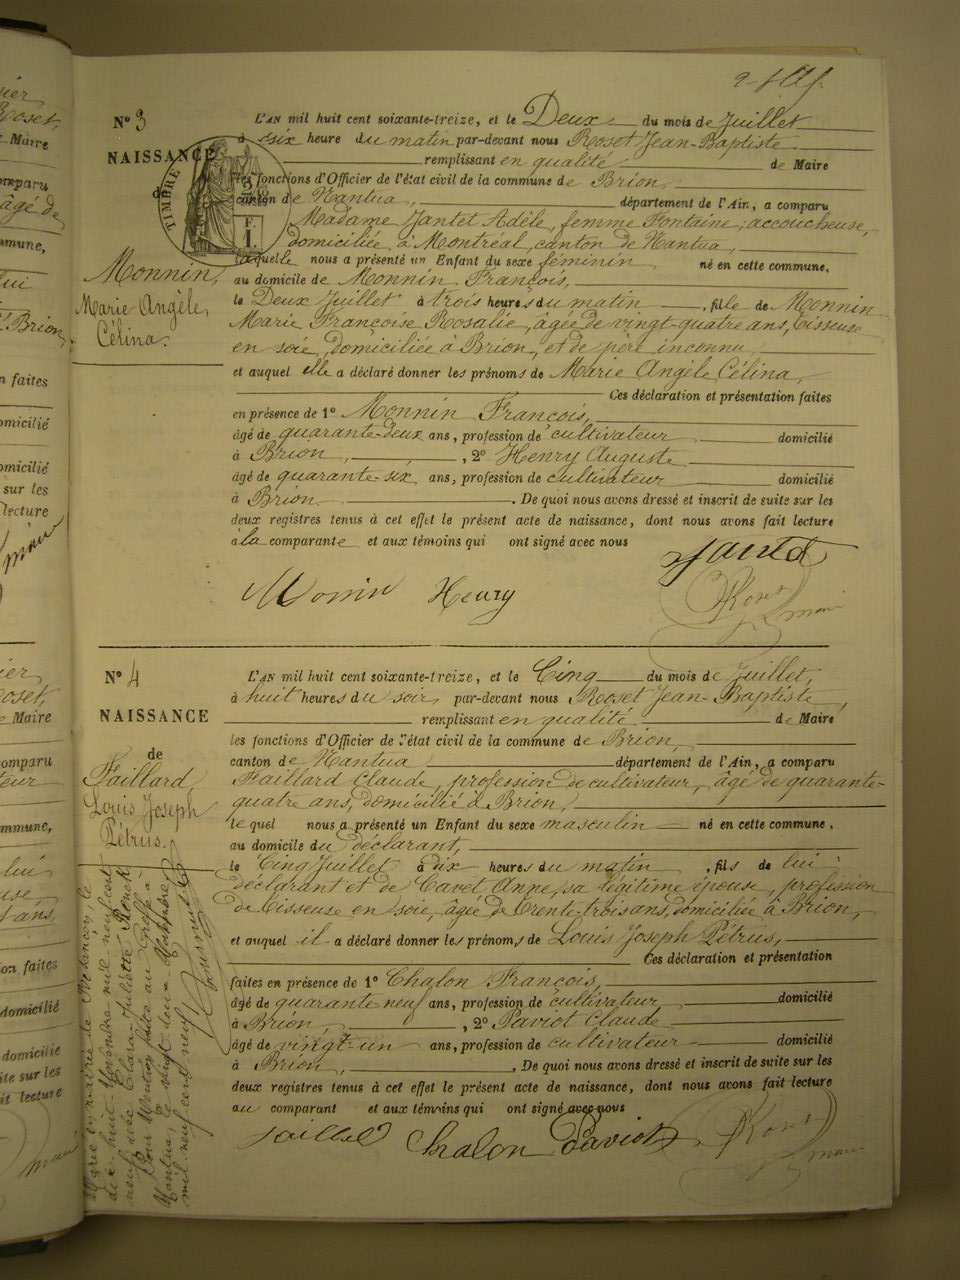 Nº 3
NAISSANCE
de
Monnin,
Marie Angèle,
Célina.
TIMBRE
L'AN mil huit cent soixante-treize, et le Deux du mois de Juillet
à six heure du matin par-devant nous Rosset Jean-Baptiste
remplissant en qualité de Maire
les fonctions d'Officier de l'état civil de la commune de Brion
canton de Nantua, département de l'Ain, a comparu
Madame Jantet Adèle, femme Fontaine, accoucheuse,
domiciliée à Montréal, canton de Nantua,
laquelle nous a présenté un Enfant du sexe féminin né en cette commune,
au domicile de Monnin François,
le Deux Juillet à trois heures du matin, fille de Monnin
Marie Françoise Rosalie, âgée de vingt-quatre ans, tisseuse
en soie, domiciliée à Brion, et de père inconnu
et auquel elle a déclaré donner les prénoms de Marie Angèle Célina,
Ces déclaration et présentation faites
en présence de 1º Monnin François,
âgé de quarante-deux ans, profession de cultivateur domicilié
à Brion, 2º Henry Auguste
âgé de quarante-six ans, profession de cultivateur domicilié
à Brion. De quoi nous avons dressé et inscrit de suite sur les
deux registres tenus à cet effet le présent acte de naissance, dont nous avons fait lecture
à la comparante et aux témoins qui ont signé avec nous
Monnin Henry
maire
Nº 4
NAISSANCE
de
Faillard,
Louis Joseph
Pétrus.
L'AN mil huit cent soixante-treize, et le Cinq du mois de Juillet,
à huit heures du soir, par-devant nous Rosset Jean-Baptiste,
remplissant en qualité de Maire
les fonctions d'Officier de l'état civil de la commune de Brion,
canton de Nantua département de l'Ain, a comparu
Faillard Claude, profession de cultivateur, âgé de quarante-
quatre ans, domicilié à Brion,
lequel nous a présenté un Enfant du sexe masculin né en cette commune,
au domicile du déclarant,
le Cinq Juillet à dix heures du matin, fils de lui
déclarant et de Cavet Anne, sa légitime épouse, profession
de tisseuse en soie, âgée de trente-trois ans, domiciliée à Brion,
et auquel il a déclaré donner les prénoms de Louis Joseph Pétrus,
Ces déclaration et présentation
faites en présence de 1º Chalon François,
âgé de quarante neuf ans, profession de cultivateur, domicilié
à Brion, 2º Paviot Claude
âgé de vingt-un ans, profession de cultivateur domicilié
à Brion, De quoi nous avons dressé et inscrit de suite sur les
deux registres tenus à cet effet le présent acte de naissance, dont nous avons fait lecture
au comparant et aux témoins qui ont signé avec nous
Chalon Paviot
maire
Marié en mairie de le
dix huit mil neuf cent
neuf avec Clara Juliette
Pour mention faite au Greffe à
Nantua, le vingt deux
mil neuf cent neuf